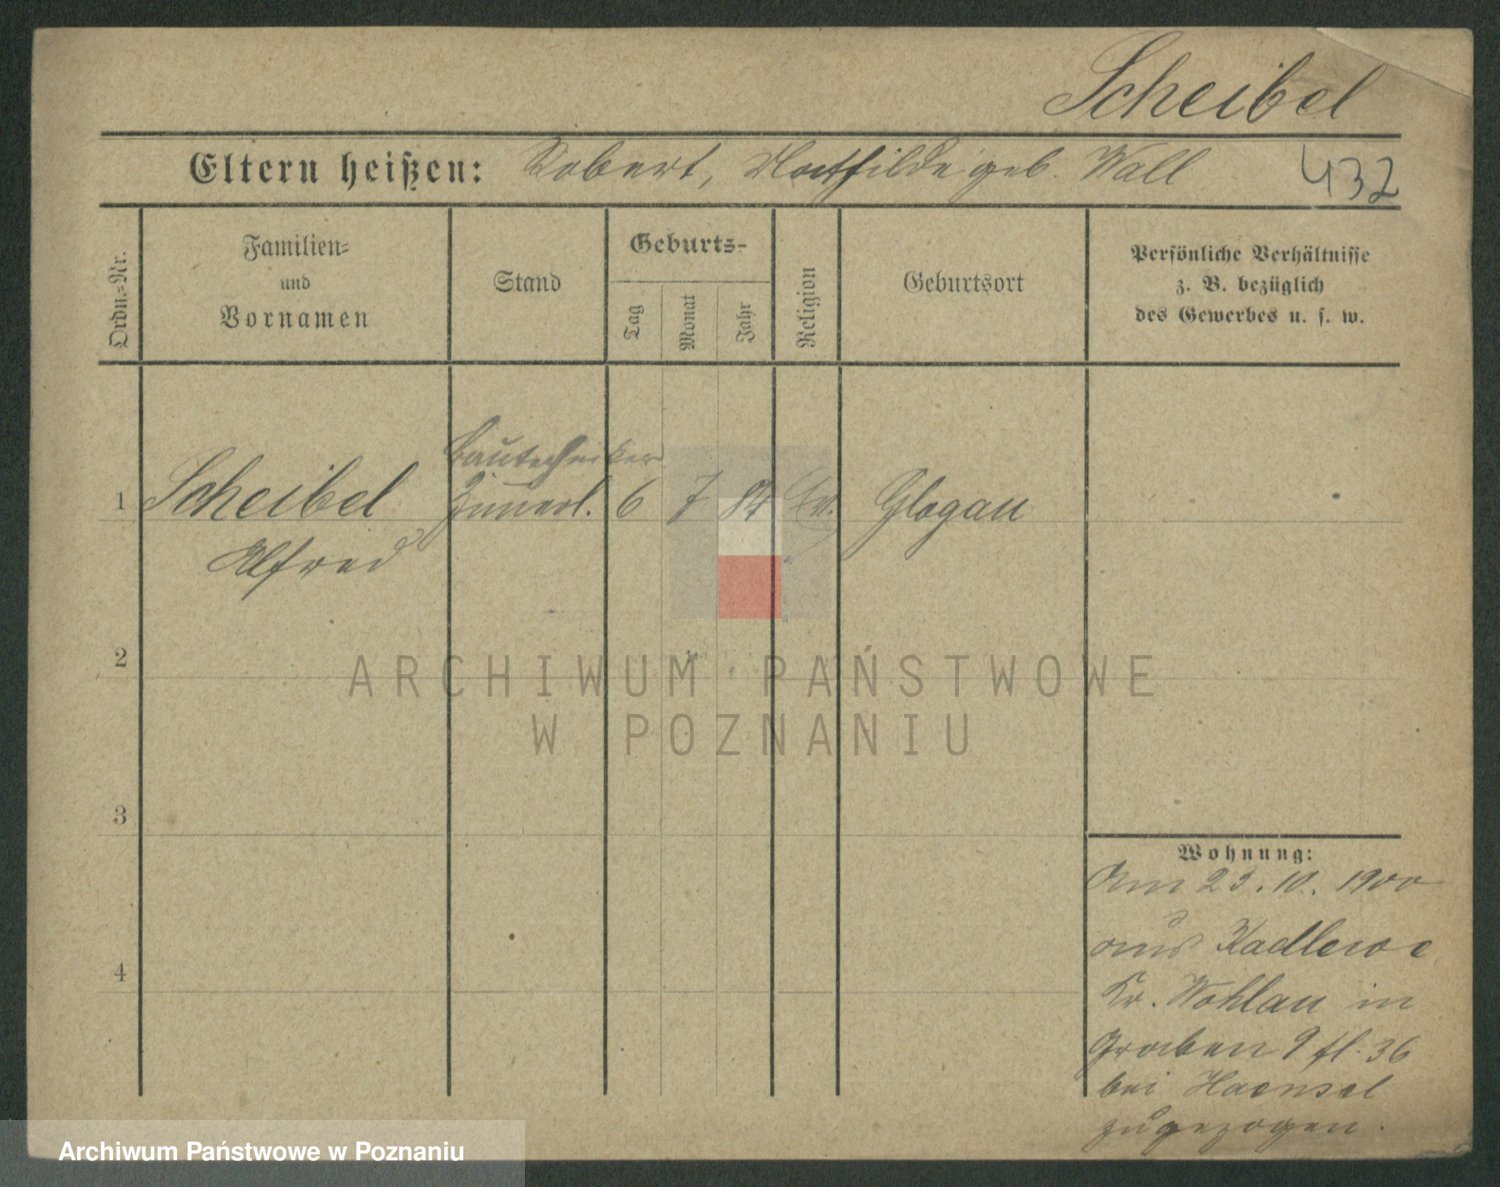 Scheibel
Eltern heißen: Robert, Mathilde geb. Wall 432
Ordn.-Nr.
Familien-
und
Vornamen
Stand
Geburts-
Tag
Monat
Jahr
Religion
Geburtsort
Persönliche Verhältnisse
z. B. bezüglich
des Gewerbes u. s. w.
Bautechniker
1 Scheibel 6 7 Ev. Glogau
Alfred
2
3
4
ARCHIWUM PAŃSTWOWE
W POZNANIU
Wohnung:
Am 23.10.1900
aus Kadlewe
Kr. Wohlau in
Graben 9 fl. 36
bei Haensel
zugezogen.
Archiwum Państwowe w Poznaniu